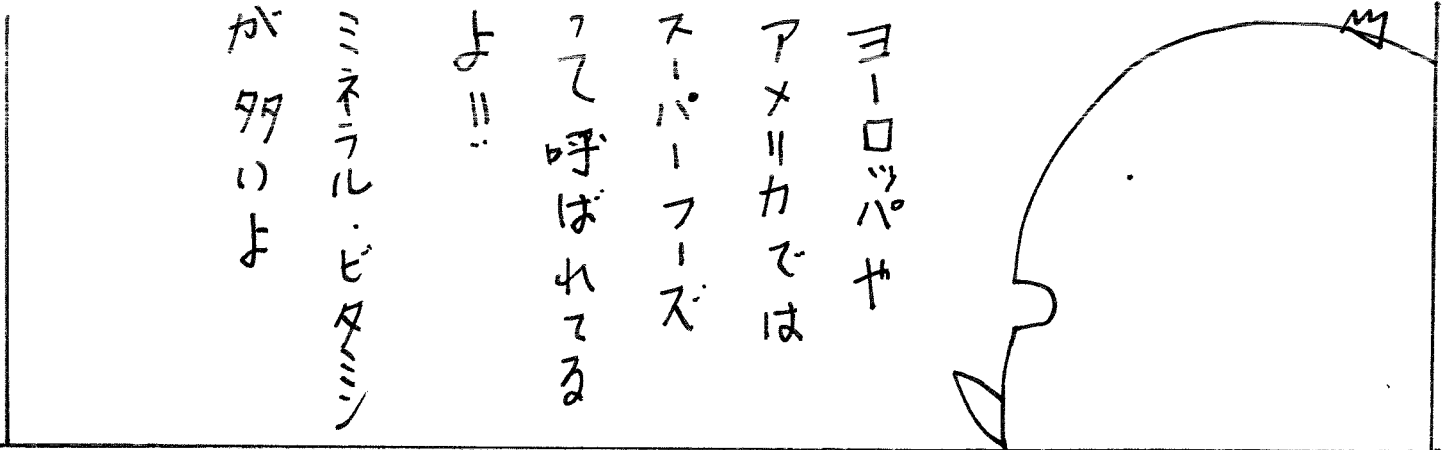 ヨーロッパや
アメリカでは
スーパーフーズ
って呼ばれてる
よ!!
ミネラル・ビタミン
が多いよ